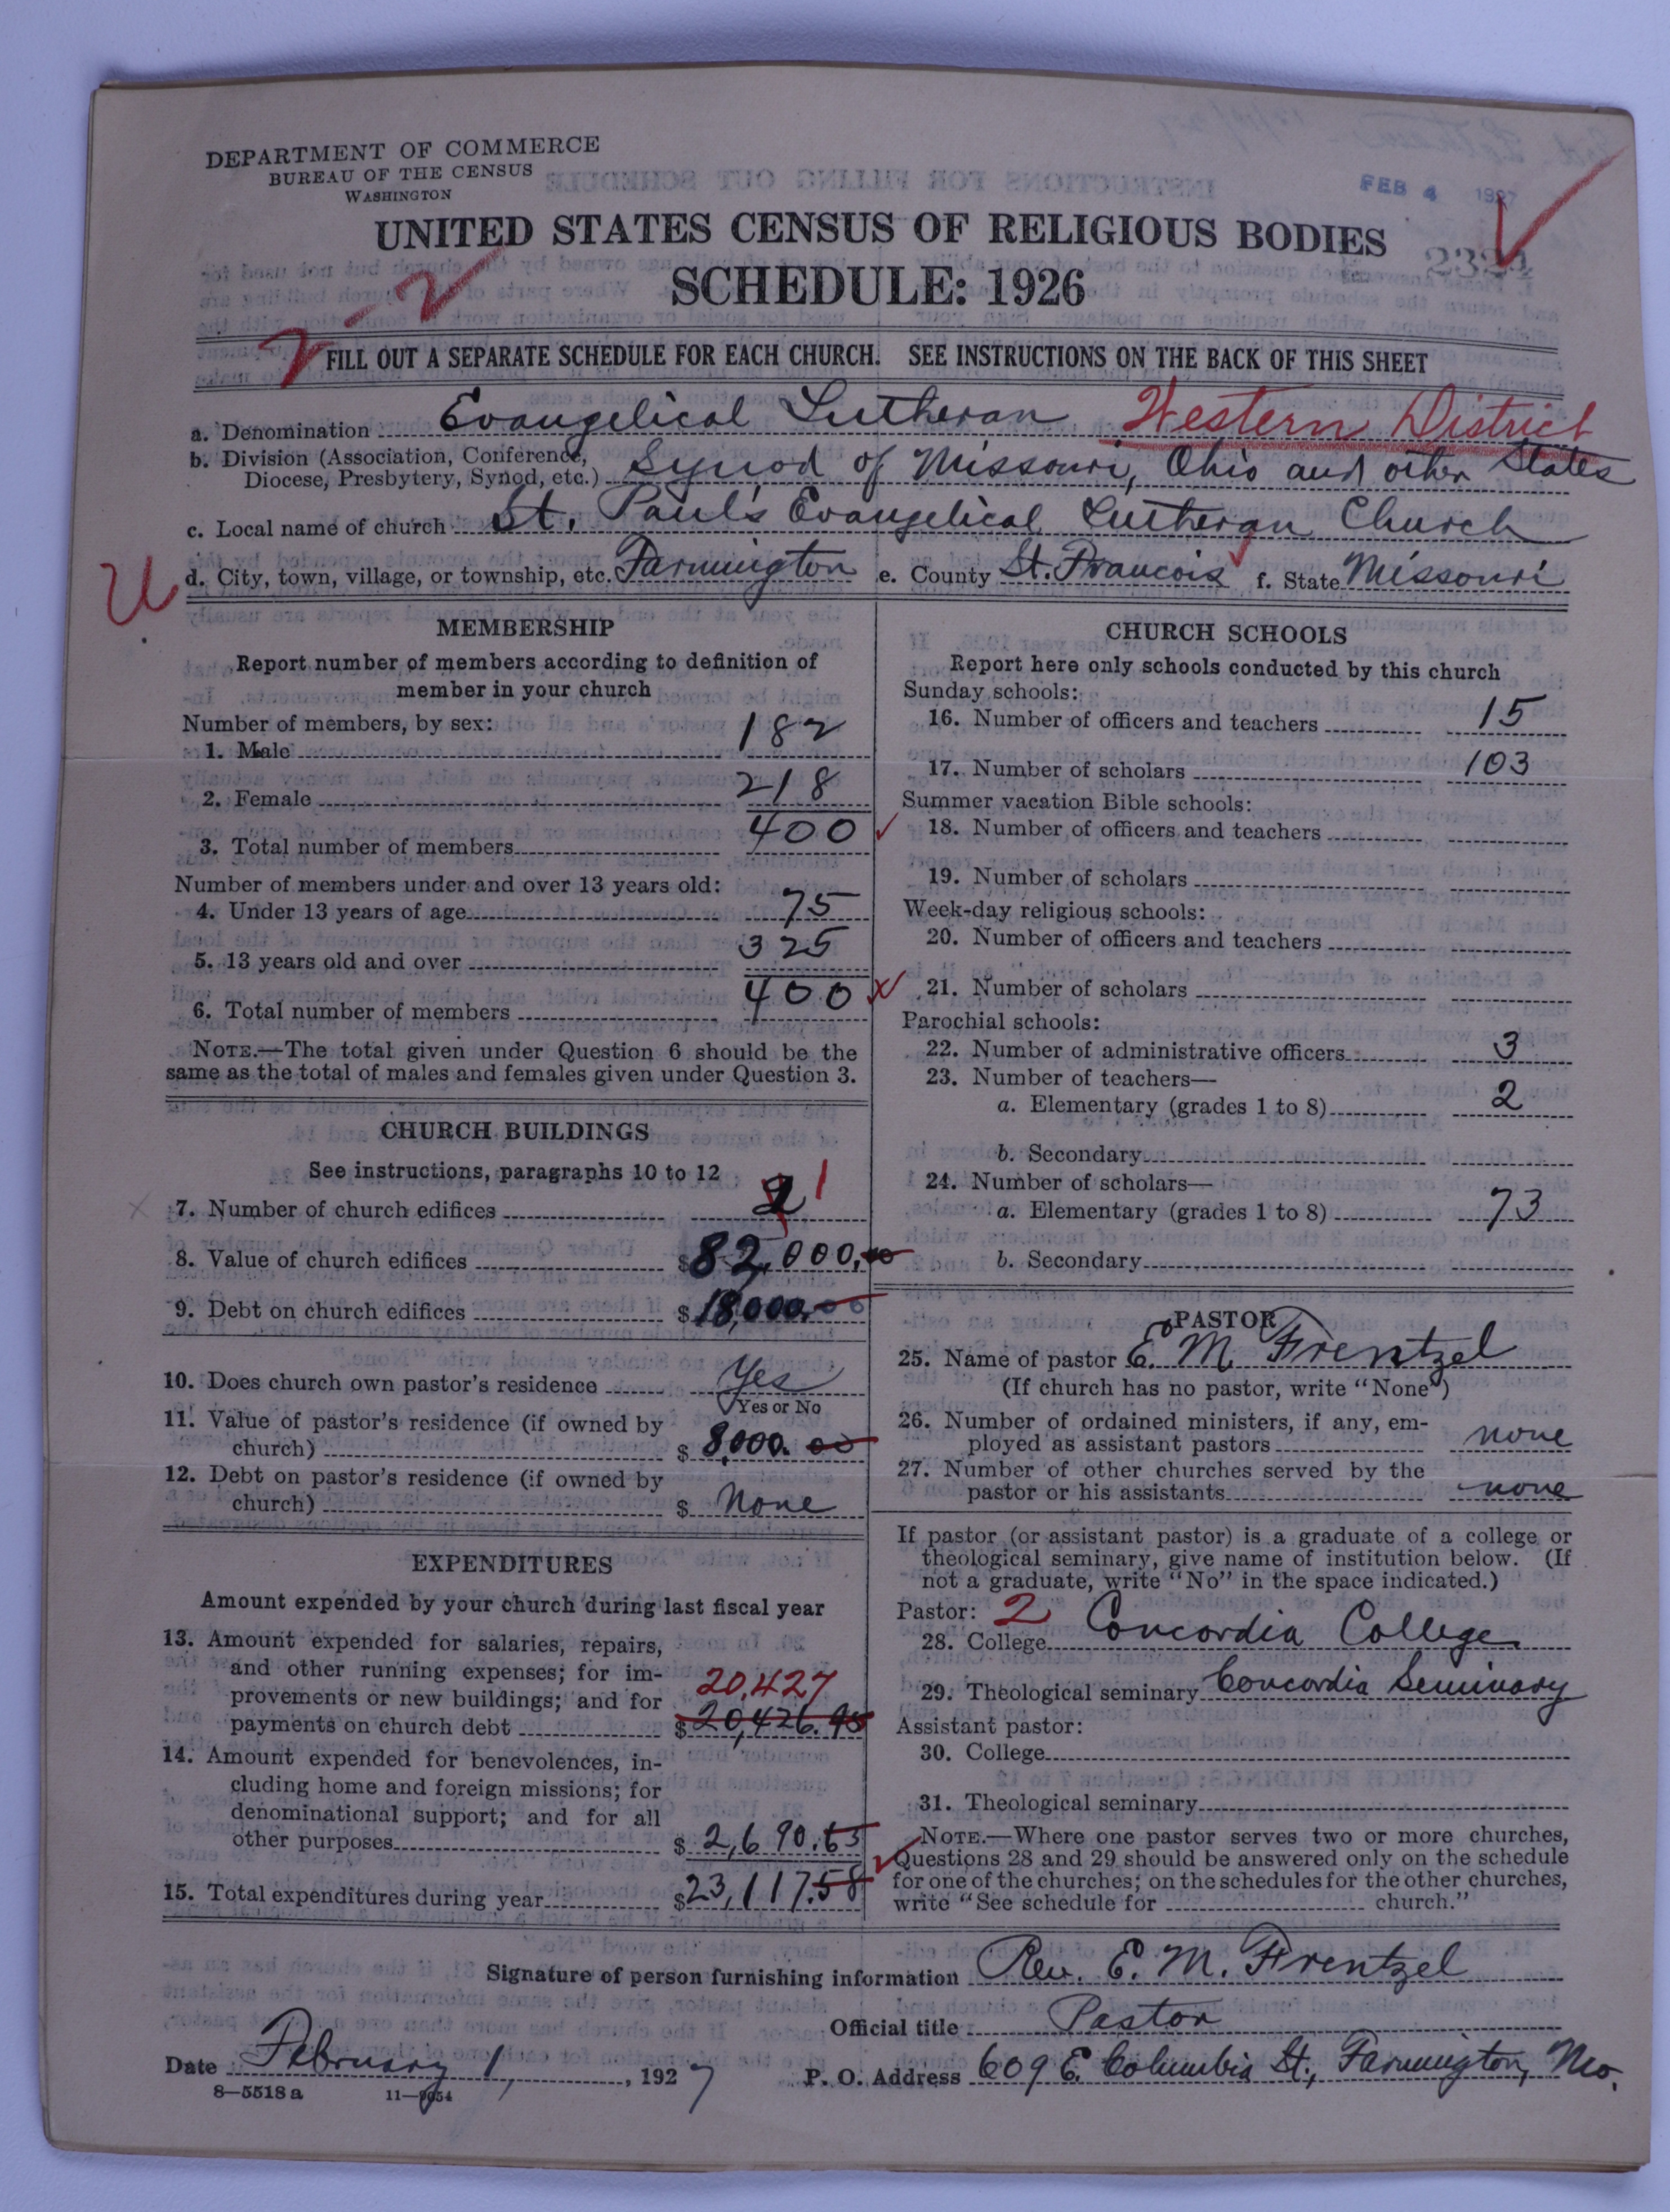 DEPARTMENT OF COMMERCE
BUREAU OF THE CENSUS
WASHINGTON
FEB 4 1927
UNITED STATES CENSUS OF RELIGIOUS BODIES
SCHEDULE: 1926
2-2
FILL OUT A SEPARATE SCHEDULE FOR EACH CHURCH. SEE INSTRUCTIONS ON THE BACK OF THIS SHEET
a. Denomination Evangelical Lutheran Western District
b. Division (Association, Conference, Diocese, Presbytery, Synod, etc.) Synod of Missouri, Ohio and other States
c. Local name of church St. Paul's Evangelical Lutheran Church
U d. City, town, village, or township, etc. Farmington e. County St. Francois f. State Missouri
MEMBERSHIP
Report number of members according to definition of
member in your church
Number of members, by sex:
1. Male 182
2. Female 218
3. Total number of members 400
Number of members under and over 13 years old:
4. Under 13 years of age 75
5. 13 years old and over 325
6. Total number of members 400
NOTE.—The total given under Question 6 should be the
same as the total of males and females given under Question 3.
CHURCH BUILDINGS
See instructions, paragraphs 10 to 12
7. Number of church edifices 2 1
8. Value of church edifices $82,000.00
9. Debt on church edifices $18,000.00
10. Does church own pastor's residence Yes
Yes or No
11. Value of pastor's residence (if owned by
church) $8,000.00
12. Debt on pastor's residence (if owned by
church) $ None
EXPENDITURES
Amount expended by your church during last fiscal year
13. Amount expended for salaries, repairs,
and other running expenses; for im-
provements or new buildings; and for 20,427
payments on church debt $20,426.95
14. Amount expended for benevolences, in-
cluding home and foreign missions; for
denominational support; and for all
other purposes $2,690.63
15. Total expenditures during year $23,117.58
CHURCH SCHOOLS
Report here only schools conducted by this church
Sunday schools:
16. Number of officers and teachers 15
17. Number of scholars 103
Summer vacation Bible schools:
18. Number of officers and teachers
19. Number of scholars
Week-day religious schools:
20. Number of officers and teachers
21. Number of scholars
Parochial schools:
22. Number of administrative officers 3
23. Number of teachers—
a. Elementary (grades 1 to 8) 2
b. Secondary
24. Number of scholars—
a. Elementary (grades 1 to 8) 73
b. Secondary
PASTOR
25. Name of pastor E. M. Frentzel
(If church has no pastor, write "None")
26. Number of ordained ministers, if any, em-
ployed as assistant pastors none
27. Number of other churches served by the
pastor or his assistants none
If pastor (or assistant pastor) is a graduate of a college or
theological seminary, give name of institution below. (If
not a graduate, write "No" in the space indicated.)
Pastor: 2
28. College Concordia College
29. Theological seminary Concordia Seminary
Assistant pastor:
30. College
31. Theological seminary
NOTE.—Where one pastor serves two or more churches,
Questions 28 and 29 should be answered only on the schedule
for one of the churches; on the schedules for the other churches,
write "See schedule for church."
Signature of person furnishing information Rev. E. M. Frentzel
Official title Pastor
Date February 1, 1927 P. O. Address 609 E. Columbia St., Farmington, Mo.
8—5518 a 11—9654